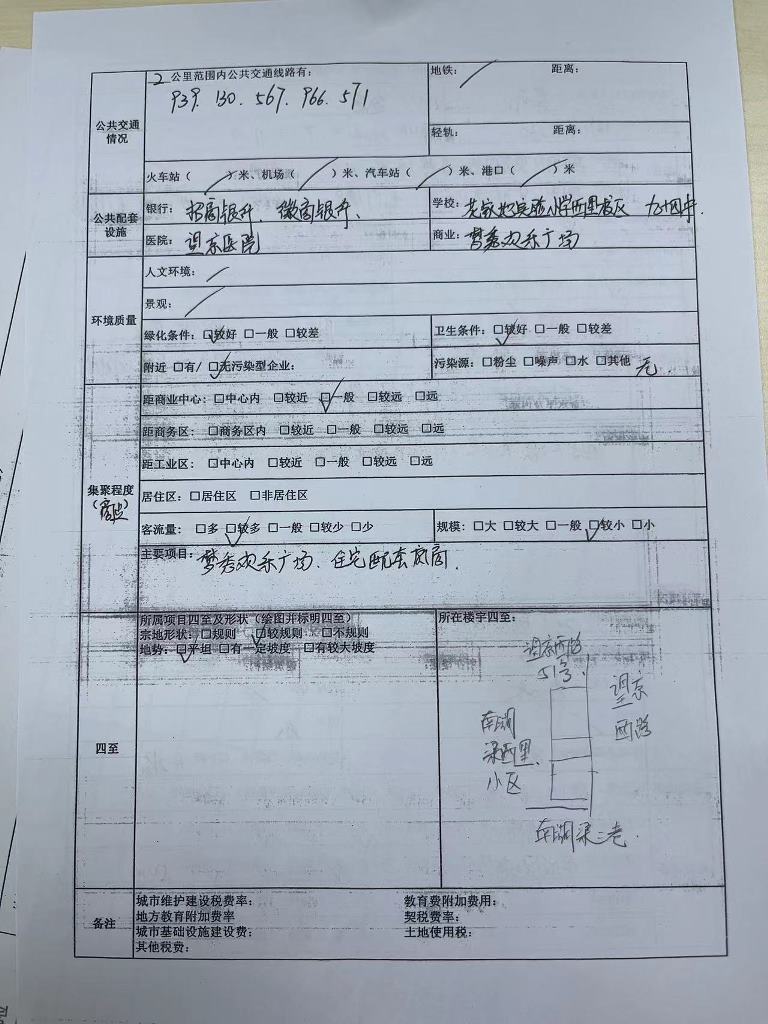 2 公里范围内公共交通线路有：
939. 130. 567. 966. 571
地铁： 距离：
公共交通
情况
轻轨： 距离：
火车站（ ）米、机场（ ）米、汽车站（ ）米、港口（ ）米
公共配套
设施
银行：招商银行、徽商银行、
学校：花家地实验小学西里校区 九十四中.
医院：望京医院
商业：梦秀欢乐广场
环境质量
人文环境：
景观：
绿化条件：☑较好 □一般 □较差
卫生条件：☑较好 □一般 □较差
附近 □有/ ☑无污染型企业：
污染源：□粉尘 □噪声 □水 □其他 无.
集聚程度
（商业）
距商业中心：□中心内 □较近 ☑一般 □较远 □远
距商务区：□商务区内 □较近 □一般 □较远 □远
距工业区：□中心内 □较近 □一般 □较远 □远
居住区：□居住区 □非居住区
客流量：□多 ☑较多 □一般 □较少 □少
规模：□大 □较大 □一般 ☑较小 □小
主要项目：梦秀欢乐广场、住宅配套底商.
四至
所属项目四至及形状（绘图并标明四至）
宗地形状：□规则 ☑较规则 □不规则
地势：☑平坦 □有一定坡度 □有较大坡度
所在楼宇四至：
望京西路
51号
望京
西路
南湖
渠西里
小区
南湖渠二巷.
备注
城市维护建设税费率： 教育费附加费用：
地方教育附加费率 契税费率：
城市基础设施建设费： 土地使用税：
其他税费：